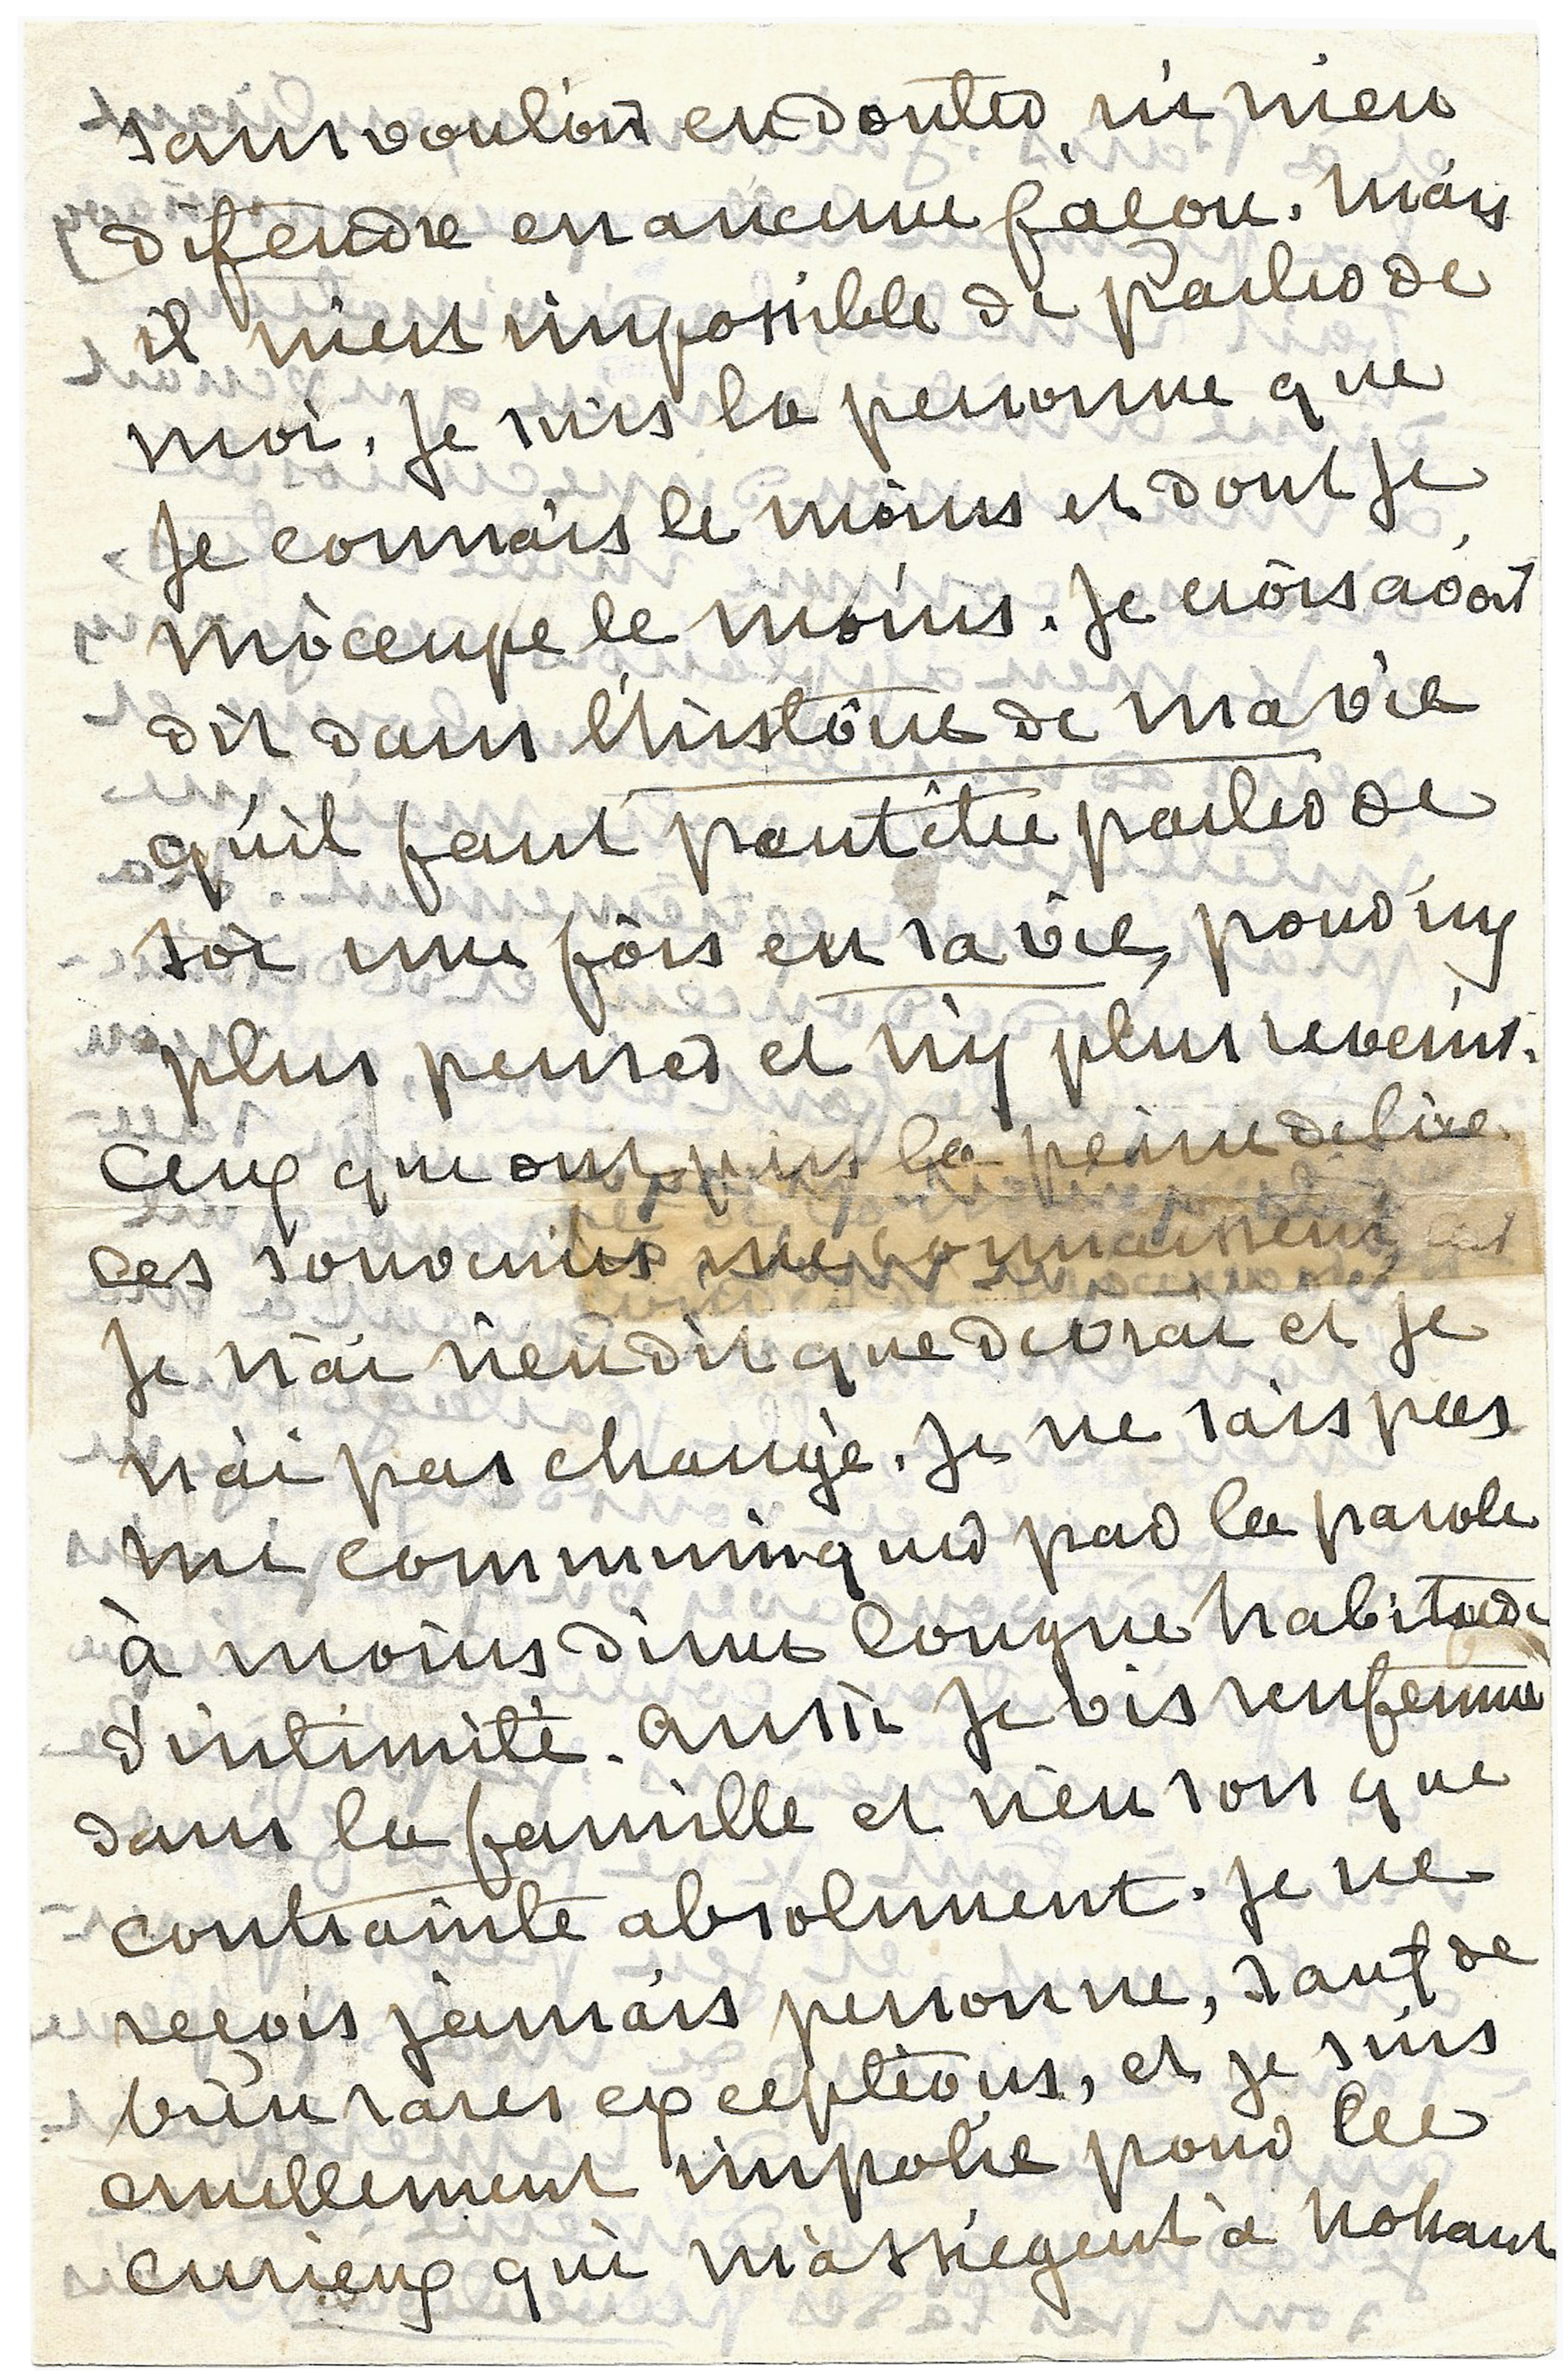 sans vouloir en douter, ni m'en
défendre en aucune façon. Mais
il m'est impossible de parler de
moi. Je suis la personne que
je connais le moins et dont je
m'occupe le moins. Je crois avoir
dit dans l'histoire de ma vie
qu'il faut peut être parler de
soi une fois en sa vie, pour n'y
plus penser et n'y plus revenir.
Ceux que ont pris la peine de lire
ces souvenirs me connaissent, car
je n'ai rien dit que de vrai et je
n'ai pas changé. Je ne sais pas
me communiquer par la parole
à moins d'une longue habitude
d'intimité. Aussi je vis renfermée
dans la famille et rien son que
contrainte absolument. Je ne
reçois jamais personne, sauf de
bien rares exceptions, et je suis
cruellement impolie pour les
curieux qui m'assiègent à Nohant